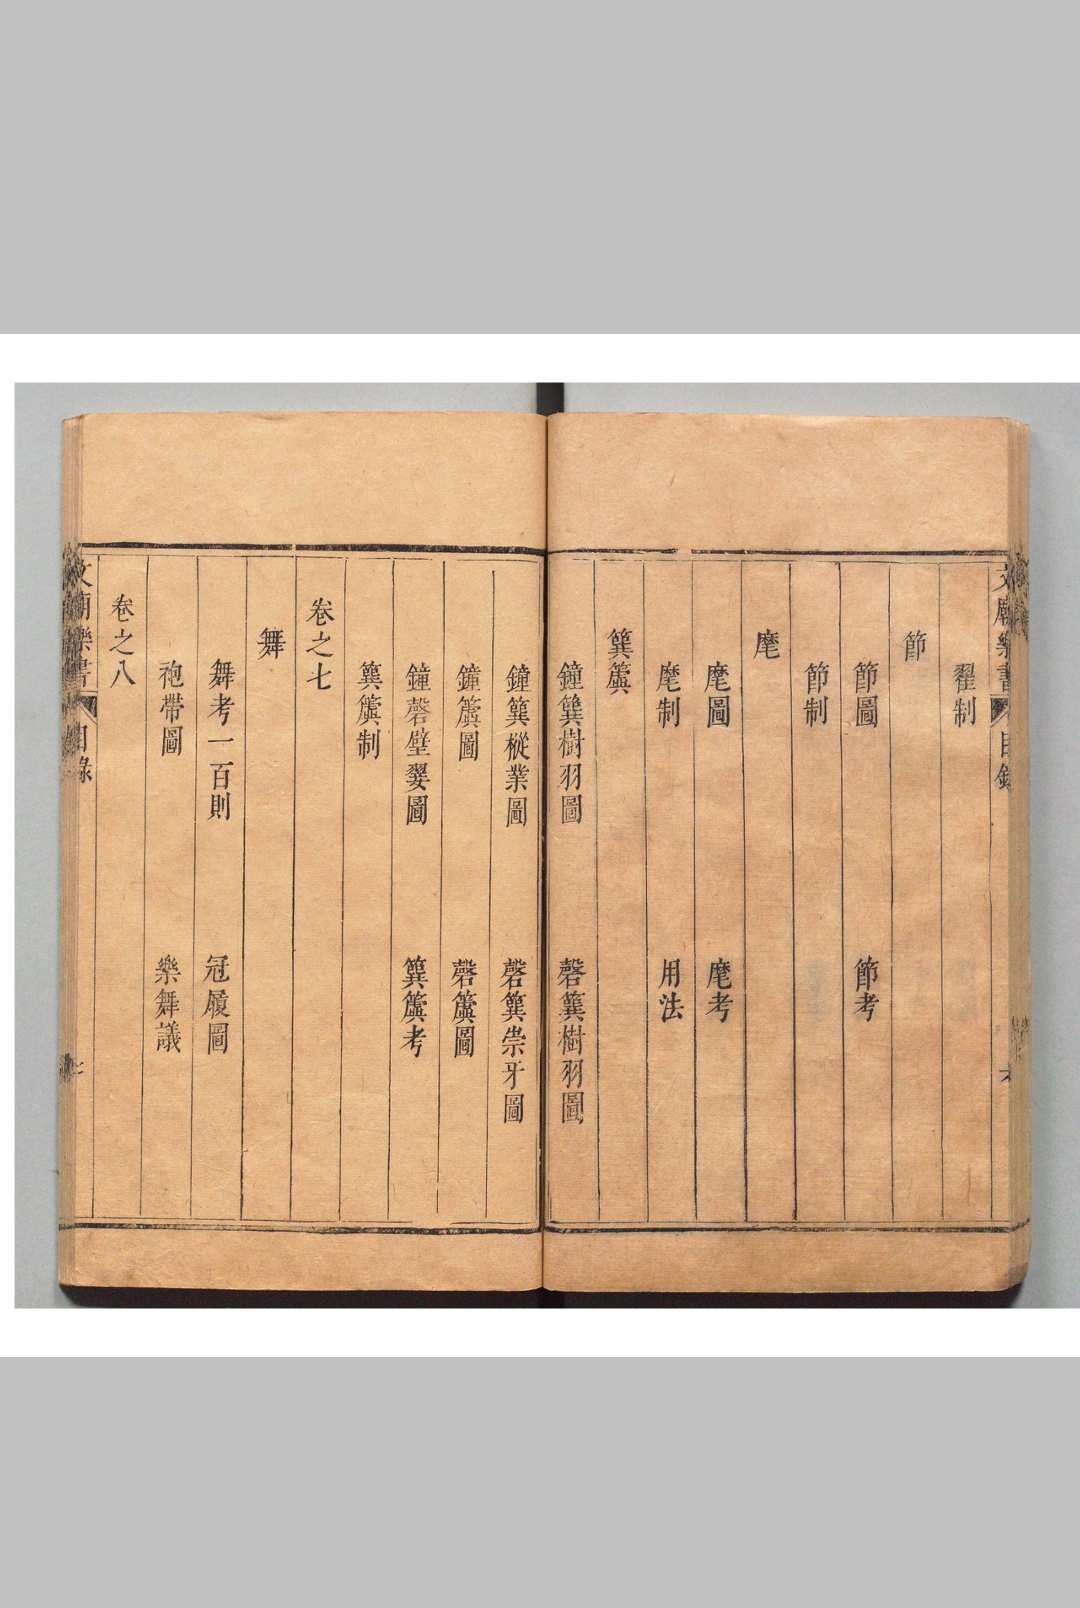 文廟樂書 目錄 六
翟制
節
節圖 節考
節制
麾
麾圖 麾考
麾制 用法
簨簴
鐘簨樹羽圖 磬簨樹羽圖
鐘簨樅業圖 磬簨崇牙圖
鐘簴圖 磬簴圖
鐘磬壁翣圖 簨簴考
簨簴制
卷之七
舞
舞考一百則 冠履圖
袍帶圖 樂舞議
卷之八
文廟樂書 目錄 七